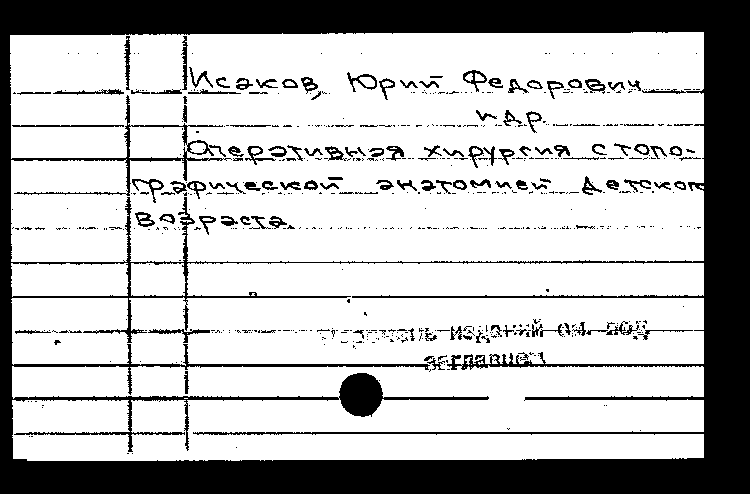 Исаков, Юрий Федорович
и др.
Оперативная хирургия с топо-
графической анатомией детского
возраста.
Перечень изданий см. под
заглавием